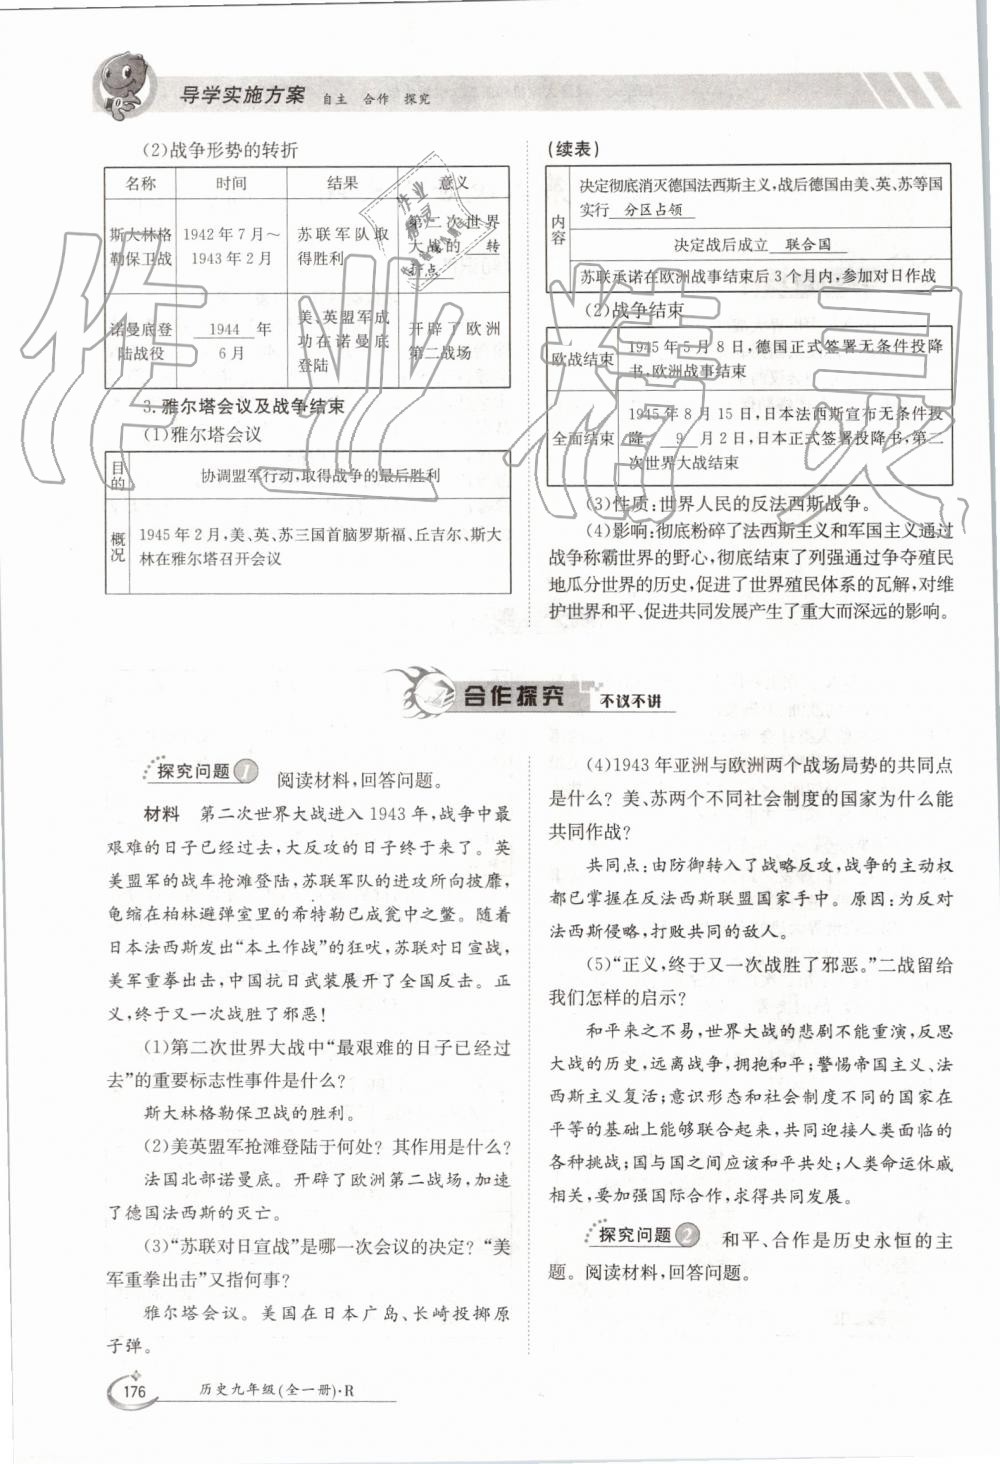 导学实施方案 自主 合作 探究
(2)战争形势的转折
名称 时间 结果 意义
斯大林格勒保卫战 1942年7月～1943年2月 苏联军队取得胜利 第二次世界大战的 转折点
诺曼底登陆战役 1944 年6月 美、英盟军成功在诺曼底登陆 开辟了欧洲第二战场
3.雅尔塔会议及战争结束
(1)雅尔塔会议
目的 协调盟军行动,取得战争的最后胜利
概况 1945年2月,美、英、苏三国首脑罗斯福、丘吉尔、斯大
林在雅尔塔召开会议
(续表)
内容 决定彻底消灭德国法西斯主义,战后德国由美、英、苏等国
实行 分区占领
决定战后成立 联合国
苏联承诺在欧洲战事结束后3个月内,参加对日作战
(2)战争结束
欧战结束 1945年5月8日,德国正式签署无条件投降
书,欧洲战事结束
全面结束 1945年8月15日,日本法西斯宣布无条件投
降。 9 月2日,日本正式签署投降书,第二
次世界大战结束
(3)性质:世界人民的反法西斯战争。
(4)影响:彻底粉碎了法西斯主义和军国主义通过
战争称霸世界的野心,彻底结束了列强通过争夺殖民
地瓜分世界的历史,促进了世界殖民体系的瓦解,对维
护世界和平、促进共同发展产生了重大而深远的影响。
合作探究 不议不讲
探究问题1 阅读材料,回答问题。
材料 第二次世界大战进入1943年,战争中最
艰难的日子已经过去,大反攻的日子终于来了。英
美盟军的战车抢滩登陆,苏联军队的进攻所向披靡,
龟缩在柏林避弹室里的希特勒已成瓮中之鳖。随着
日本法西斯发出“本土作战”的狂吠,苏联对日宣战,
美军重拳出击,中国抗日武装展开了全国反击。正
义,终于又一次战胜了邪恶!
(1)第二次世界大战中“最艰难的日子已经过
去”的重要标志性事件是什么?
斯大林格勒保卫战的胜利。
(2)美英盟军抢滩登陆于何处?其作用是什么?
法国北部诺曼底。开辟了欧洲第二战场,加速
了德国法西斯的灭亡。
(3)“苏联对日宣战”是哪一次会议的决定?“美
军重拳出击”又指何事?
雅尔塔会议。美国在日本广岛、长崎投掷原
子弹。
(4)1943年亚洲与欧洲两个战场局势的共同点
是什么?美、苏两个不同社会制度的国家为什么能
共同作战?
共同点:由防御转入了战略反攻,战争的主动权
都已掌握在反法西斯联盟国家手中。原因:为反对
法西斯侵略,打败共同的敌人。
(5)“正义,终于又一次战胜了邪恶。”二战留给
我们怎样的启示?
和平来之不易,世界大战的悲剧不能重演,反思
大战的历史,远离战争,拥抱和平;警惕帝国主义、法
西斯主义复活;意识形态和社会制度不同的国家在
平等的基础上能够联合起来,共同迎接人类面临的
各种挑战;国与国之间应该和平共处;人类命运休戚
相关,要加强国际合作,求得共同发展。
探究问题2 和平、合作是历史永恒的主
题。阅读材料,回答问题。
176 历史九年级(全一册)·R
作业精灵